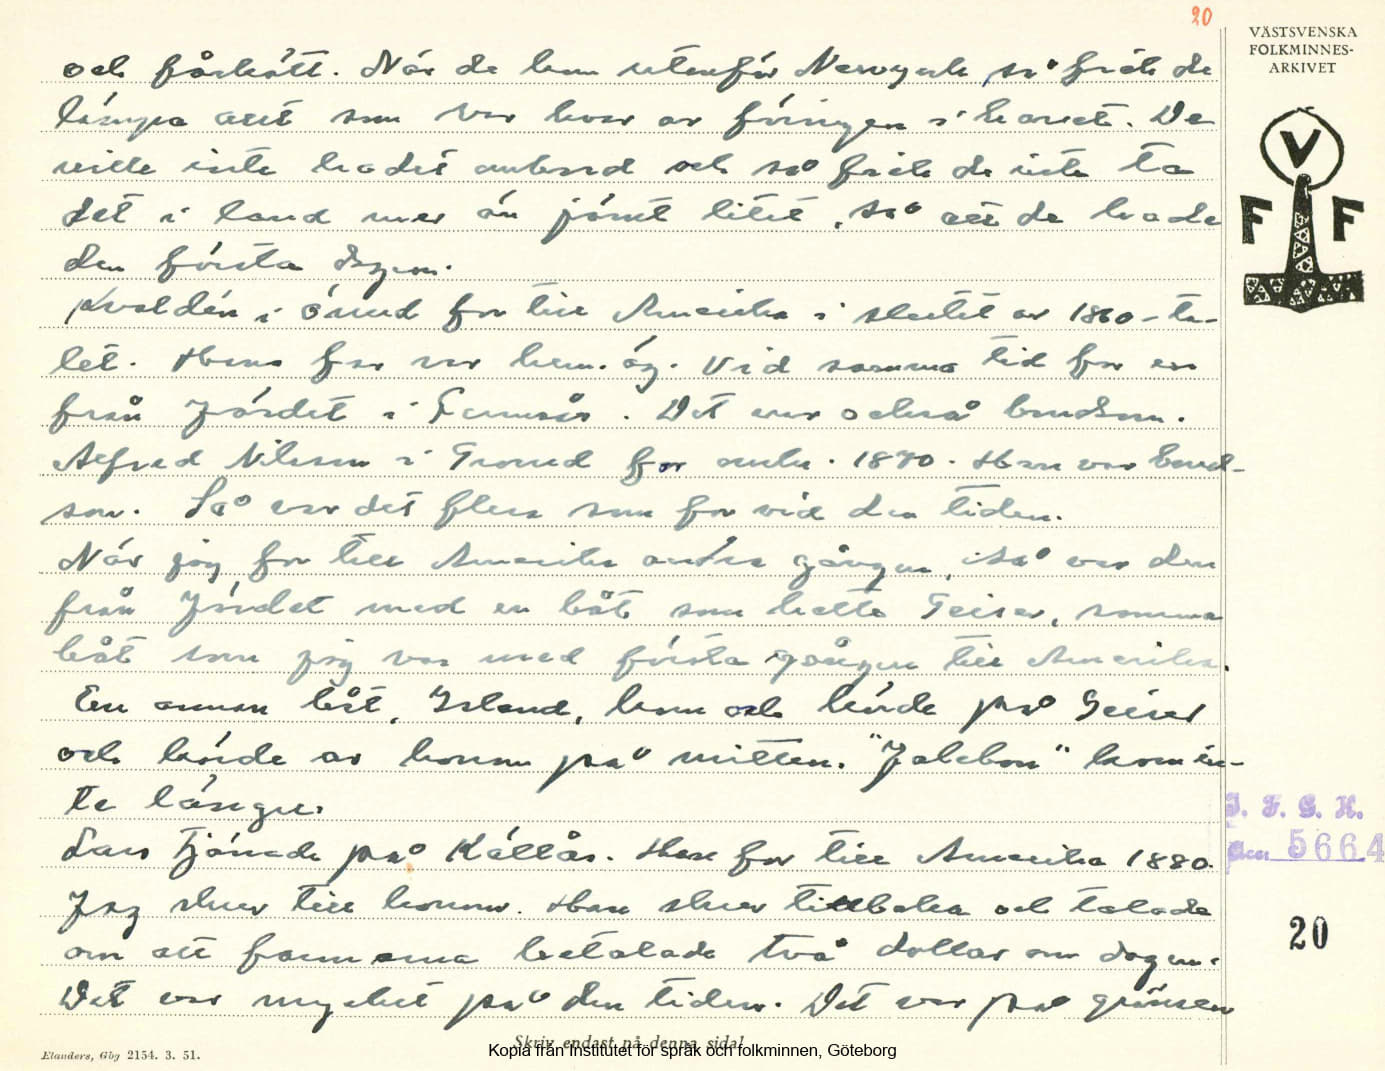 20
VÄSTSVENSKA
FOLKMINNES-
ARKIVET
V
F F
och fårkött. När de kom utanför Newyork, så fick de
lämpa allt som var kvar av föringen i havet. De
ville inte ha det ombord och så fick de inte ta
det i land mer än jämt litet, så att de hade
den första dagen.
Kvaldén i Önud for till Amerika i slutet av 1860-ta-
let. Hans far var hem. äg. Vid samma tid for en
från Järdet i Germås. Det var också bondson.
Alfred Nilsson i Groned for omkr. 1870. Han var bond-
son. Så var det flera som for vid den tiden.
När jag for till Amerika andra gången, så var den
från Järdet med en båt som hette Geiser, samma
båt som jag var med första gången till Amerika.
En annan båt, Island, kom och körde på Geiser
och körde av honom på mitten. "Jalebon" kom in-
te längre.
Lars tjänade på Källås. Han for till Amerika 1880.
Jag skrev till honom. Han skrev tillbaka och talade
om att farmarna betalade två dollar om dagen.
Det var mycket på den tiden. Det var på gränsen
I. F. G. H.
5664
20
Skriv endast på denna sida!
Elanders, Gbg 2154. 3. 51.
Kopia från Institutet för språk och folkminnen, Göteborg